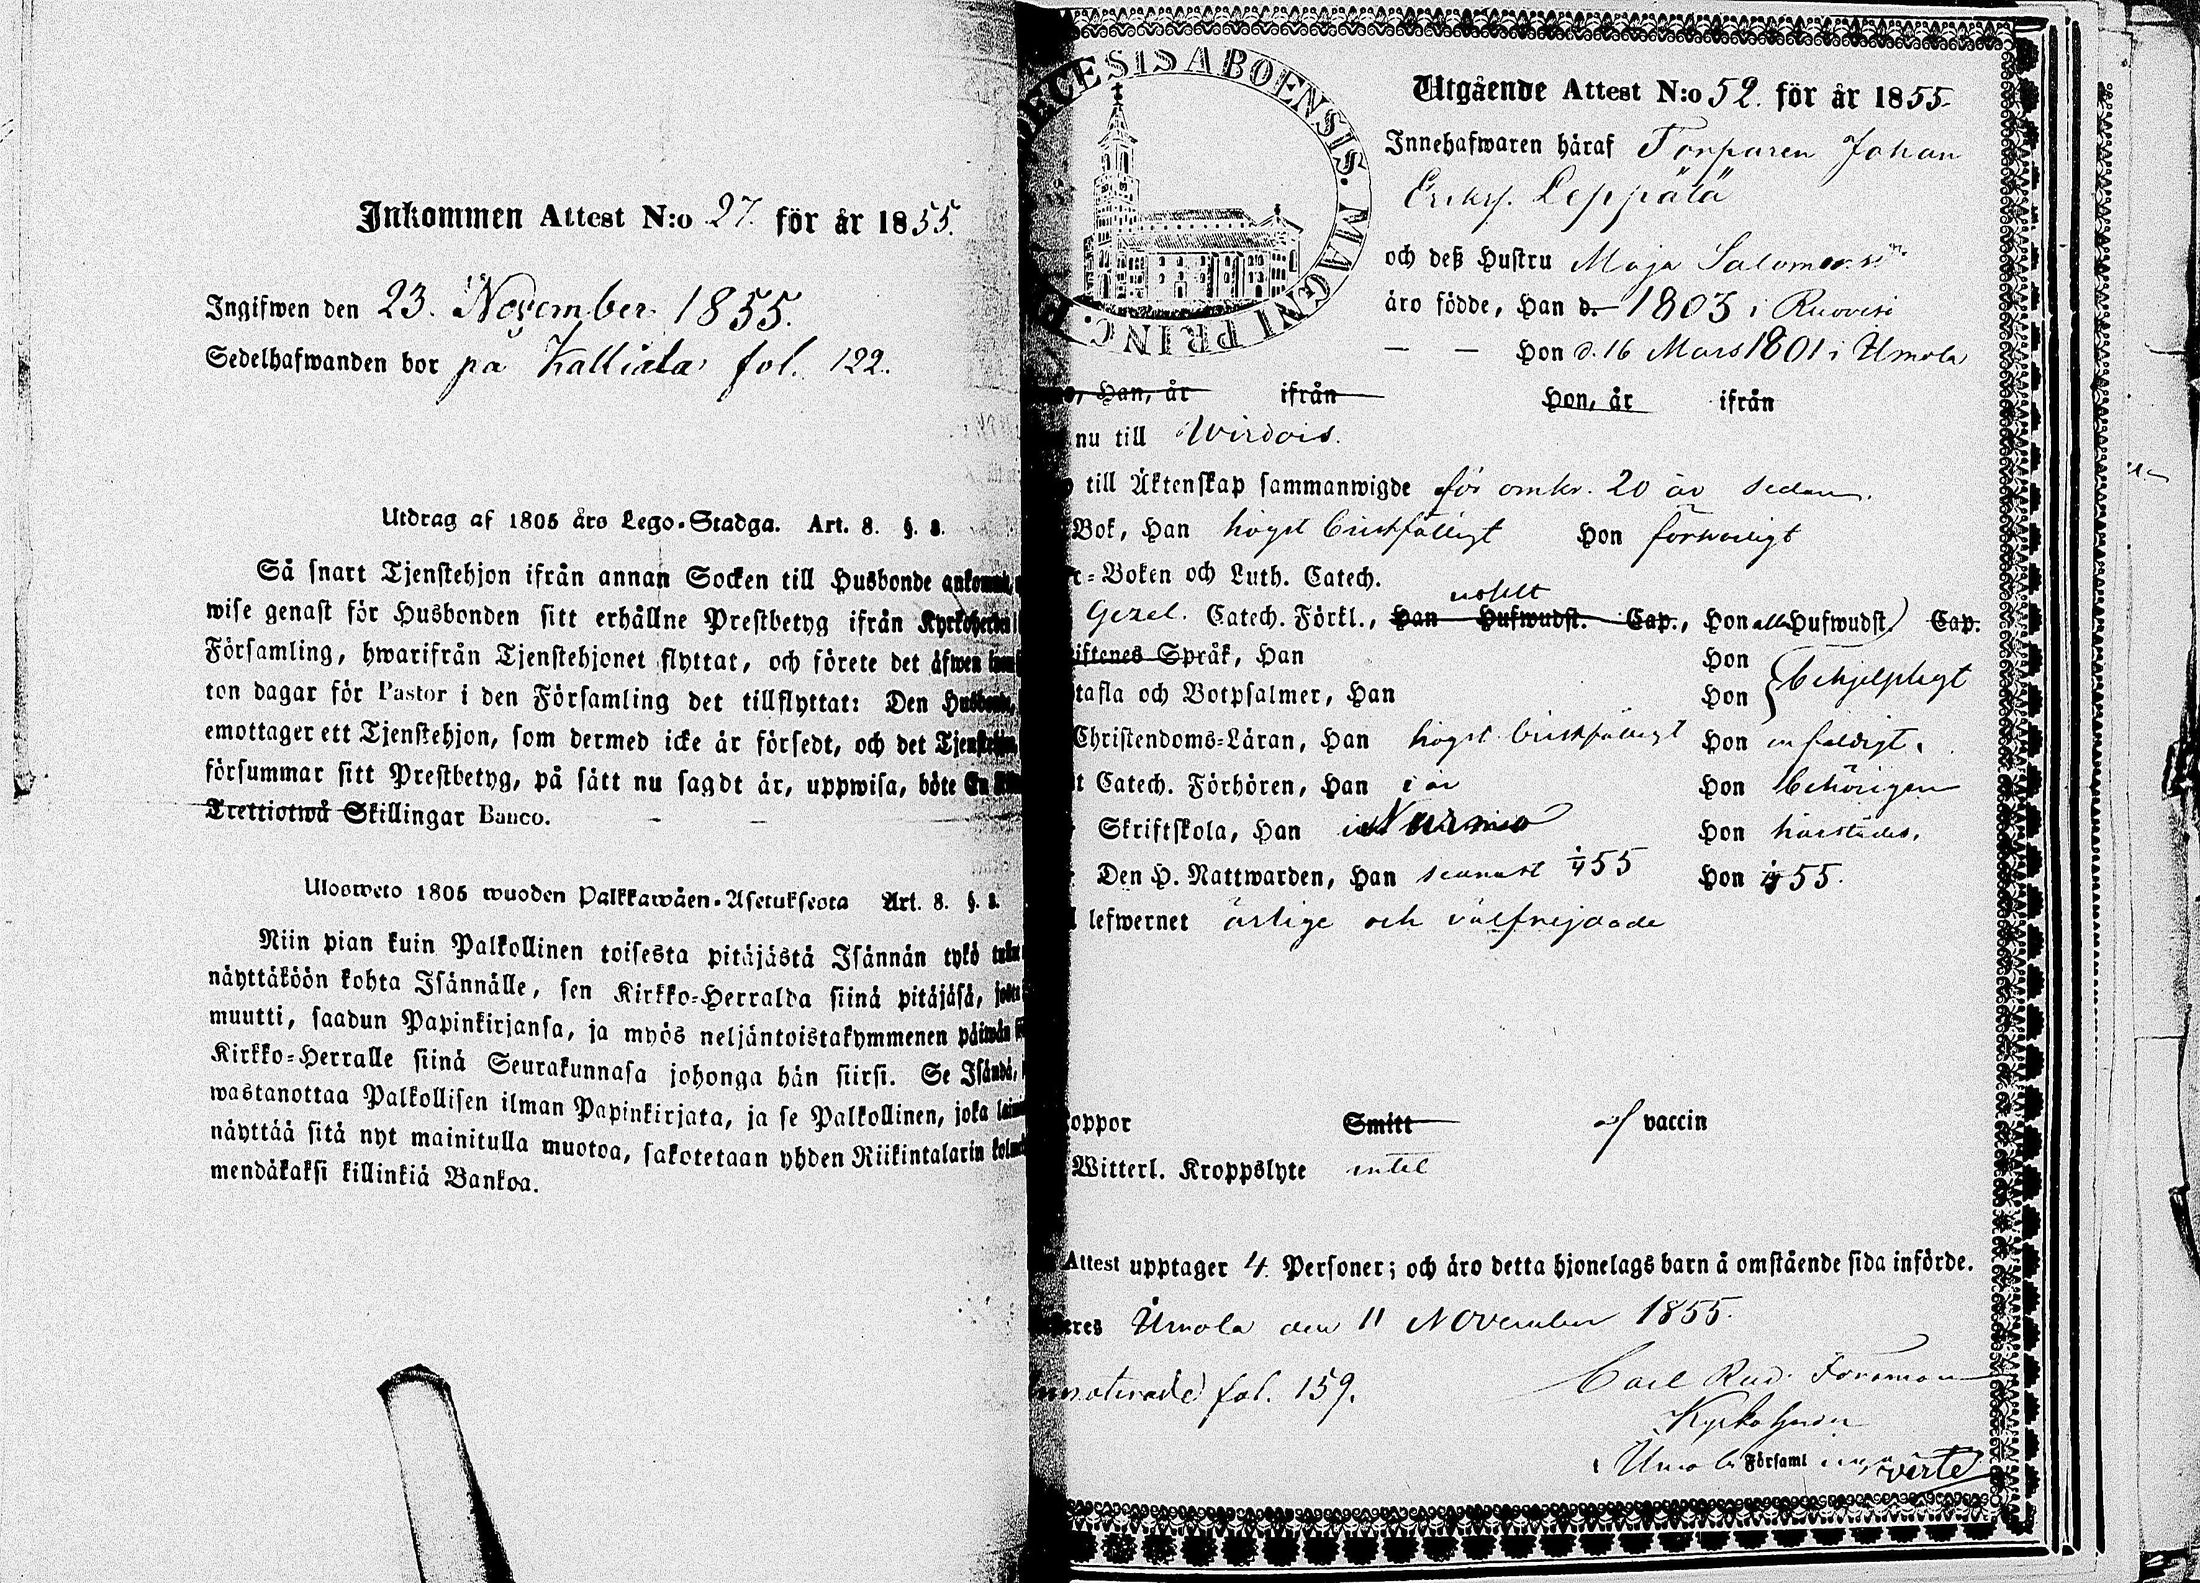 Inkommen Attest N:o 27. för år 1855.
Ingifwen den 23. November 1855.
Sedelhafwanden bor på Kalliala fol. 122.
Utdrag af 1805 års Lego-Stadga. Art. 8. §. 8.
Så snart Tjenstehjon ifrån annan Socken till Husbonde
wise genast för Husbonden sitt erhållne Prestbetyg ifrån
Församling, hwarifrån Tjenstehjonet flyttat, och förete det äfwen
ton dagar för Pastor i den Församling det tillflyttat: Den
emottager ett Tjenstehjon, som dermed icke är försedt, och det
försummar sitt Prestbetyg, på sätt nu sagdt är, uppwisa, böte En
Trettiotwå Skillingar Banco.
Ulosweto 1805 wuoden Palkkawäen-Asetuksesta Art. 8. §. 8.
Niin pian kuin Palkollinen toisesta pitäjästä Isännän tykö
näyttäköön kohta Isännälle, sen Kirkko-Herralda siinä pitäjäsä,
muutti, saadun Papinkirjansa, ja myös neljäntoistakymmenen päiwän
Kirkko-Herralle siinä Seurakunnasa johonga hän siirsi. Se Isändä,
wastanottaa Palkollisen ilman Papinkirjata, ja se Palkollinen, joka
näyttää sitä nyt mainitulla muotoa, sakotetaan yhden Riikintalarin
mendäkaksi killinkiä Bankoa.
DIOECESIS ABOENSIS. MAGNI PRINC.
Utgående Attest N:o 52. för år 1855.
Innehafwaren häraf Torparen Johan
Eriks. Leppälä
och deß Hustru Maja Salomonsd:r
äro födde, Han d. 1803 i Ruovesi
— — Hon d. 16 Mars 1801 i Urnola
Han, år ifrån Hon, år ifrån
nu till Wirdois.
till Äktenskap sammanwigde för omkr. 20 år sedan.
Bok, Han högst bristfälligt Hon försvarligt
-Boken och Luth. Catech.
Gezel. Catech. Förkl., Han Hufwudst. Cap., Hon alla Hufwudst. Cap.
Språk, Han Hon
tafla och Botpsalmer, Han Hon behjelpligt
Christendoms-Läran, Han högst bristfälligt Hon enfaldigt.
Catech. Förhören, Han i år Hon behörigen
Skriftskola, Han Hon härstädes.
Den H. Nattwarden, Han senast 55 Hon 55.
lefwernet ärlige och välfrejdade
oppor Smitt af vaccin
Witterl. Kroppslyte intet
Attest upptager 4. Personer; och äro detta hjonelags barn å omstående sida införde.
Urnola den 11 November 1855.
fol. 159.
Carl Rud. Forsman
Kyrkoherde
i Urnola Församl verte